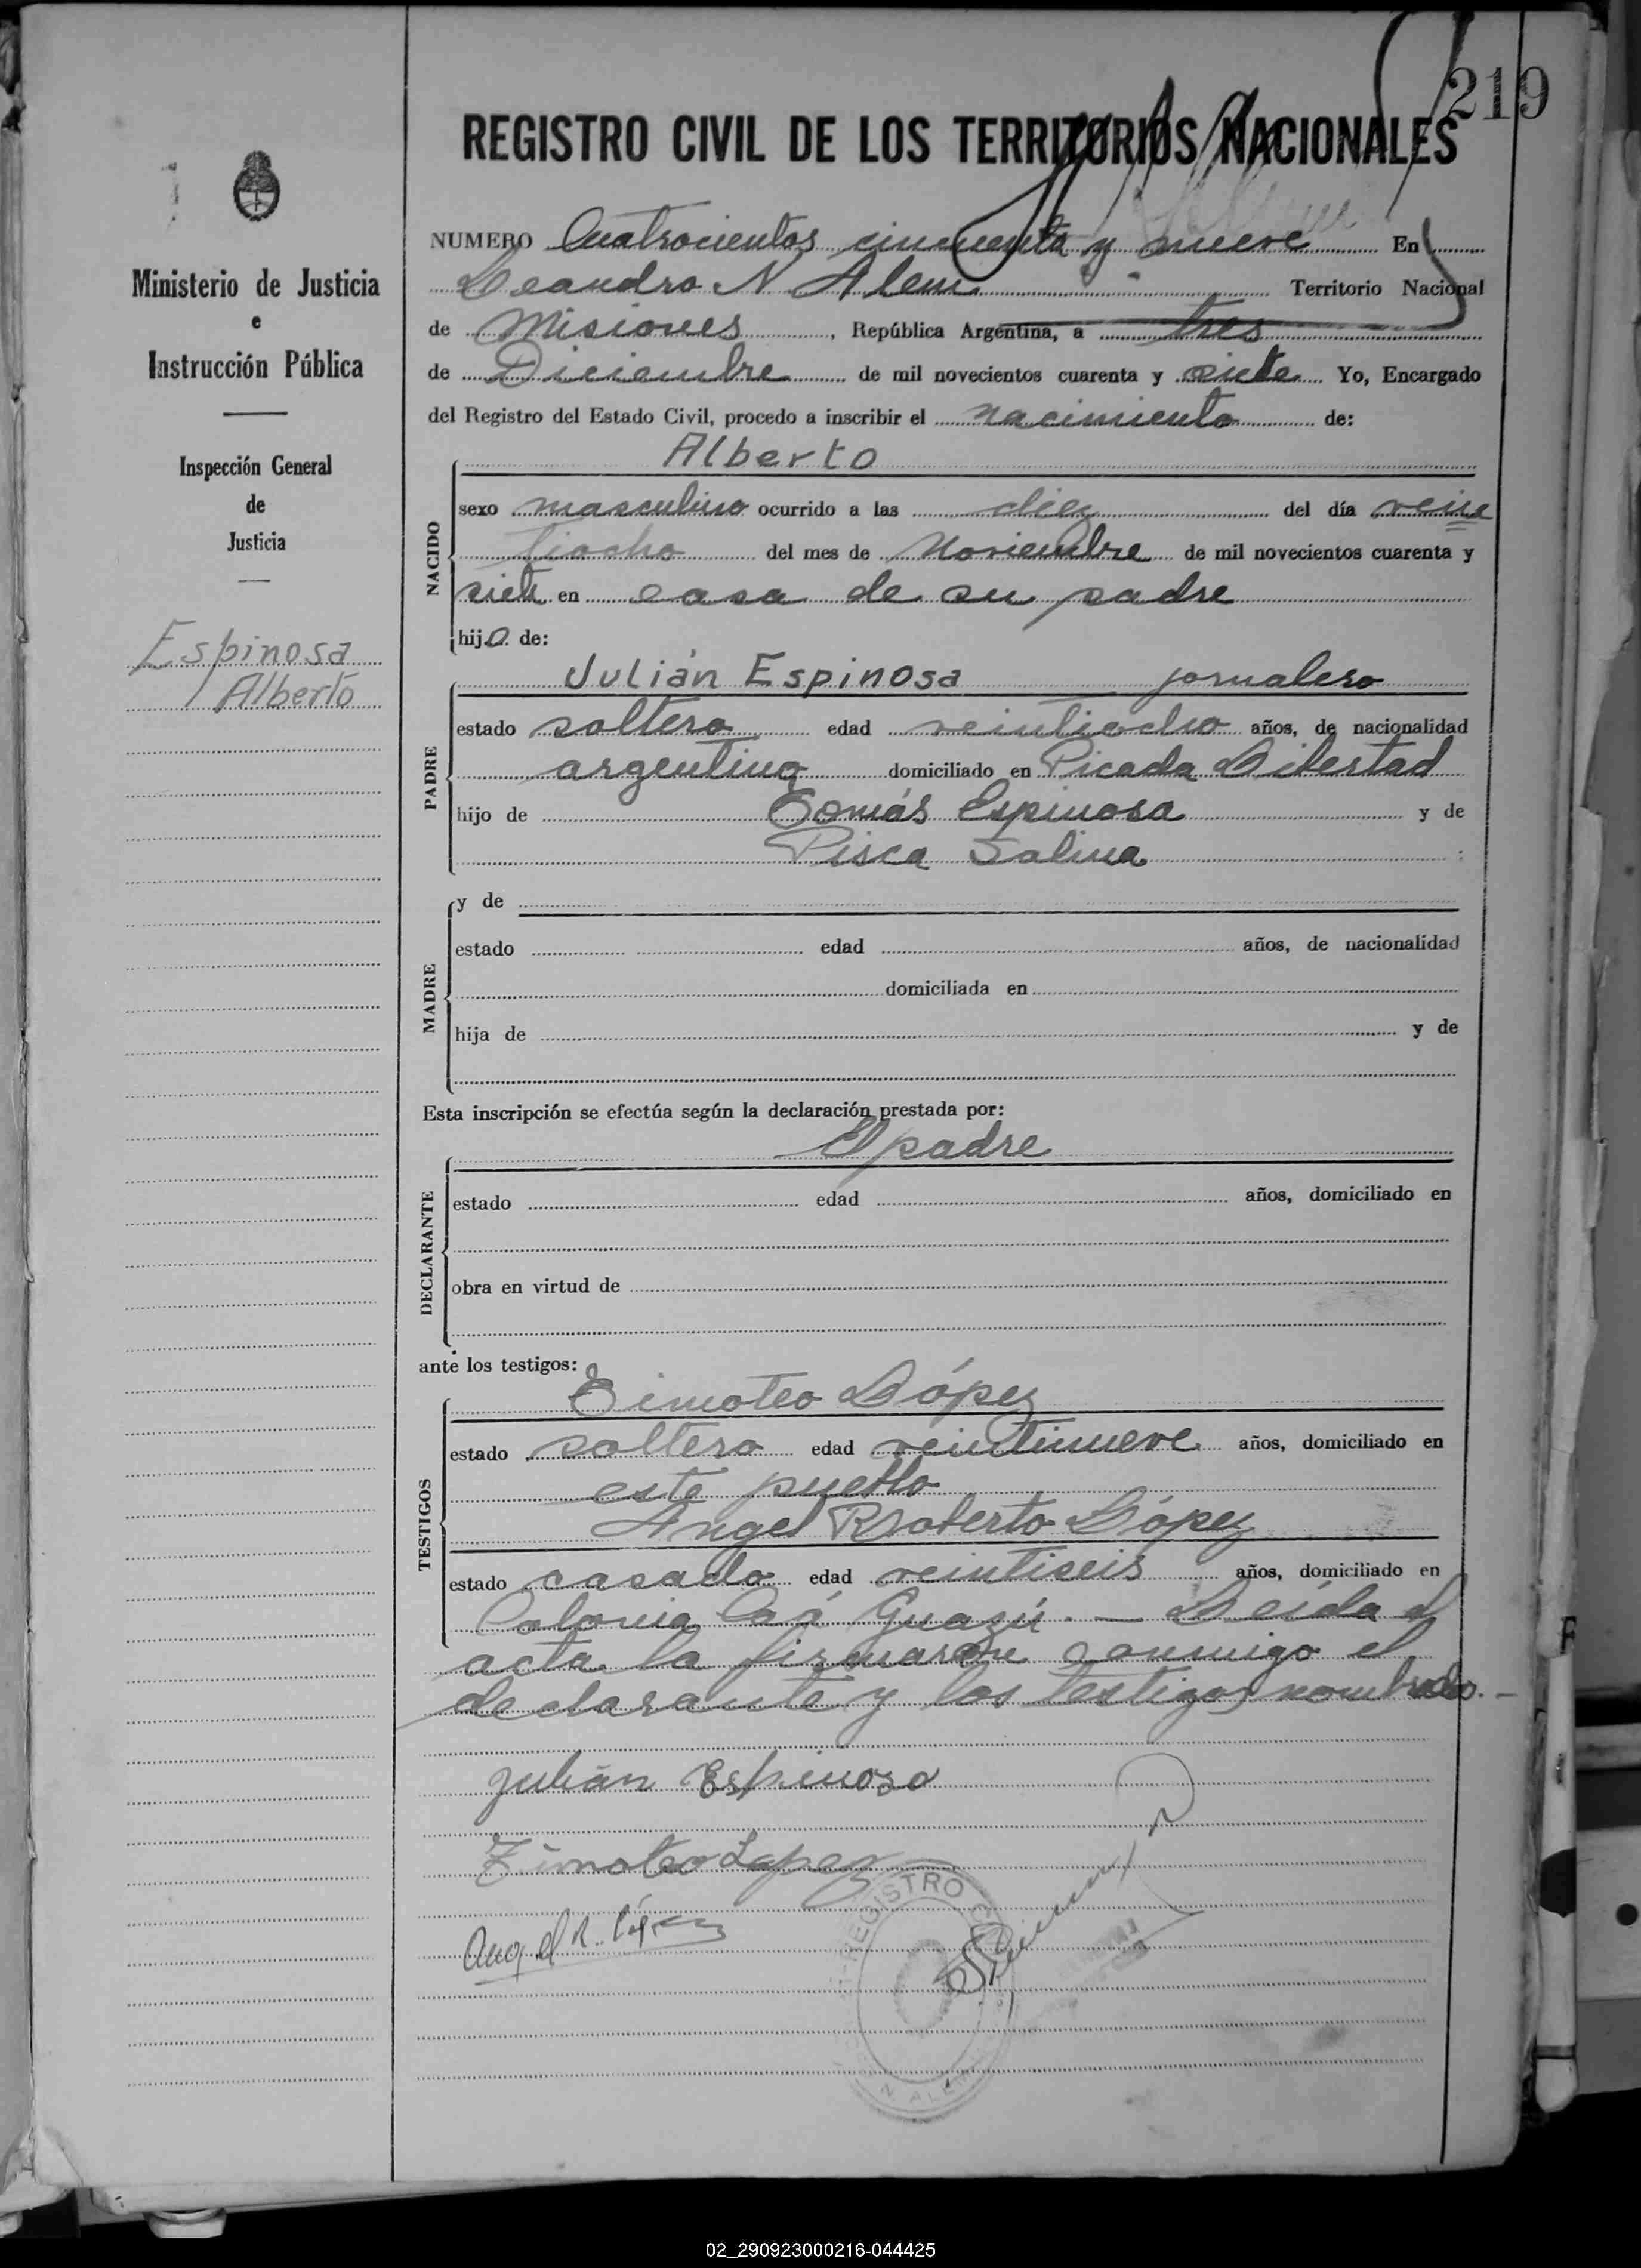 219
REGISTRO CIVIL DE LOS TERRITORIOS NACIONALES
Ministerio de Justicia
e
Instrucción Pública
Inspección General
de
Justicia
Espinosa
Alberto
NUMERO Cuatrocientos cincuenta y nueve En
Leandro N Alem Territorio Nacional
de Misiones, República Argentina, a tres
de Diciembre de mil novecientos cuarenta y siete Yo, Encargado
del Registro del Estado Civil, procedo a inscribir el nacimiento de:
NACIDO
Alberto
sexo masculino ocurrido a las diez del día vein
tiocho del mes de Noviembre de mil novecientos cuarenta y
siete en casa de su padre
hijo de:
PADRE
Julián Espinosa jornalero
estado soltero edad veintiocho años, de nacionalidad
argentina domiciliado en Picada Libertad
hijo de Tomás Espinosa y de
Pisca Salina ;
MADRE
y de
estado edad años, de nacionalidad
domiciliada en
hija de y de
Esta inscripción se efectúa según la declaración prestada por:
DECLARANTE
El padre
estado edad años, domiciliado en
obra en virtud de
ante los testigos:
TESTIGOS
Timoteo López
estado soltero edad veintinueve años, domiciliado en
este pueblo
Angel Rroberto López
estado casado edad veintiseis años, domiciliado en
Colonia Caá Guazú. — Leída el
acta la firmaron conmigo el
declarante y los testigos nombrados. —
Julián Espinosa
Timoteo Lopez
Angel R. López
REGISTRO
N ALEM
02_290923000216-044425